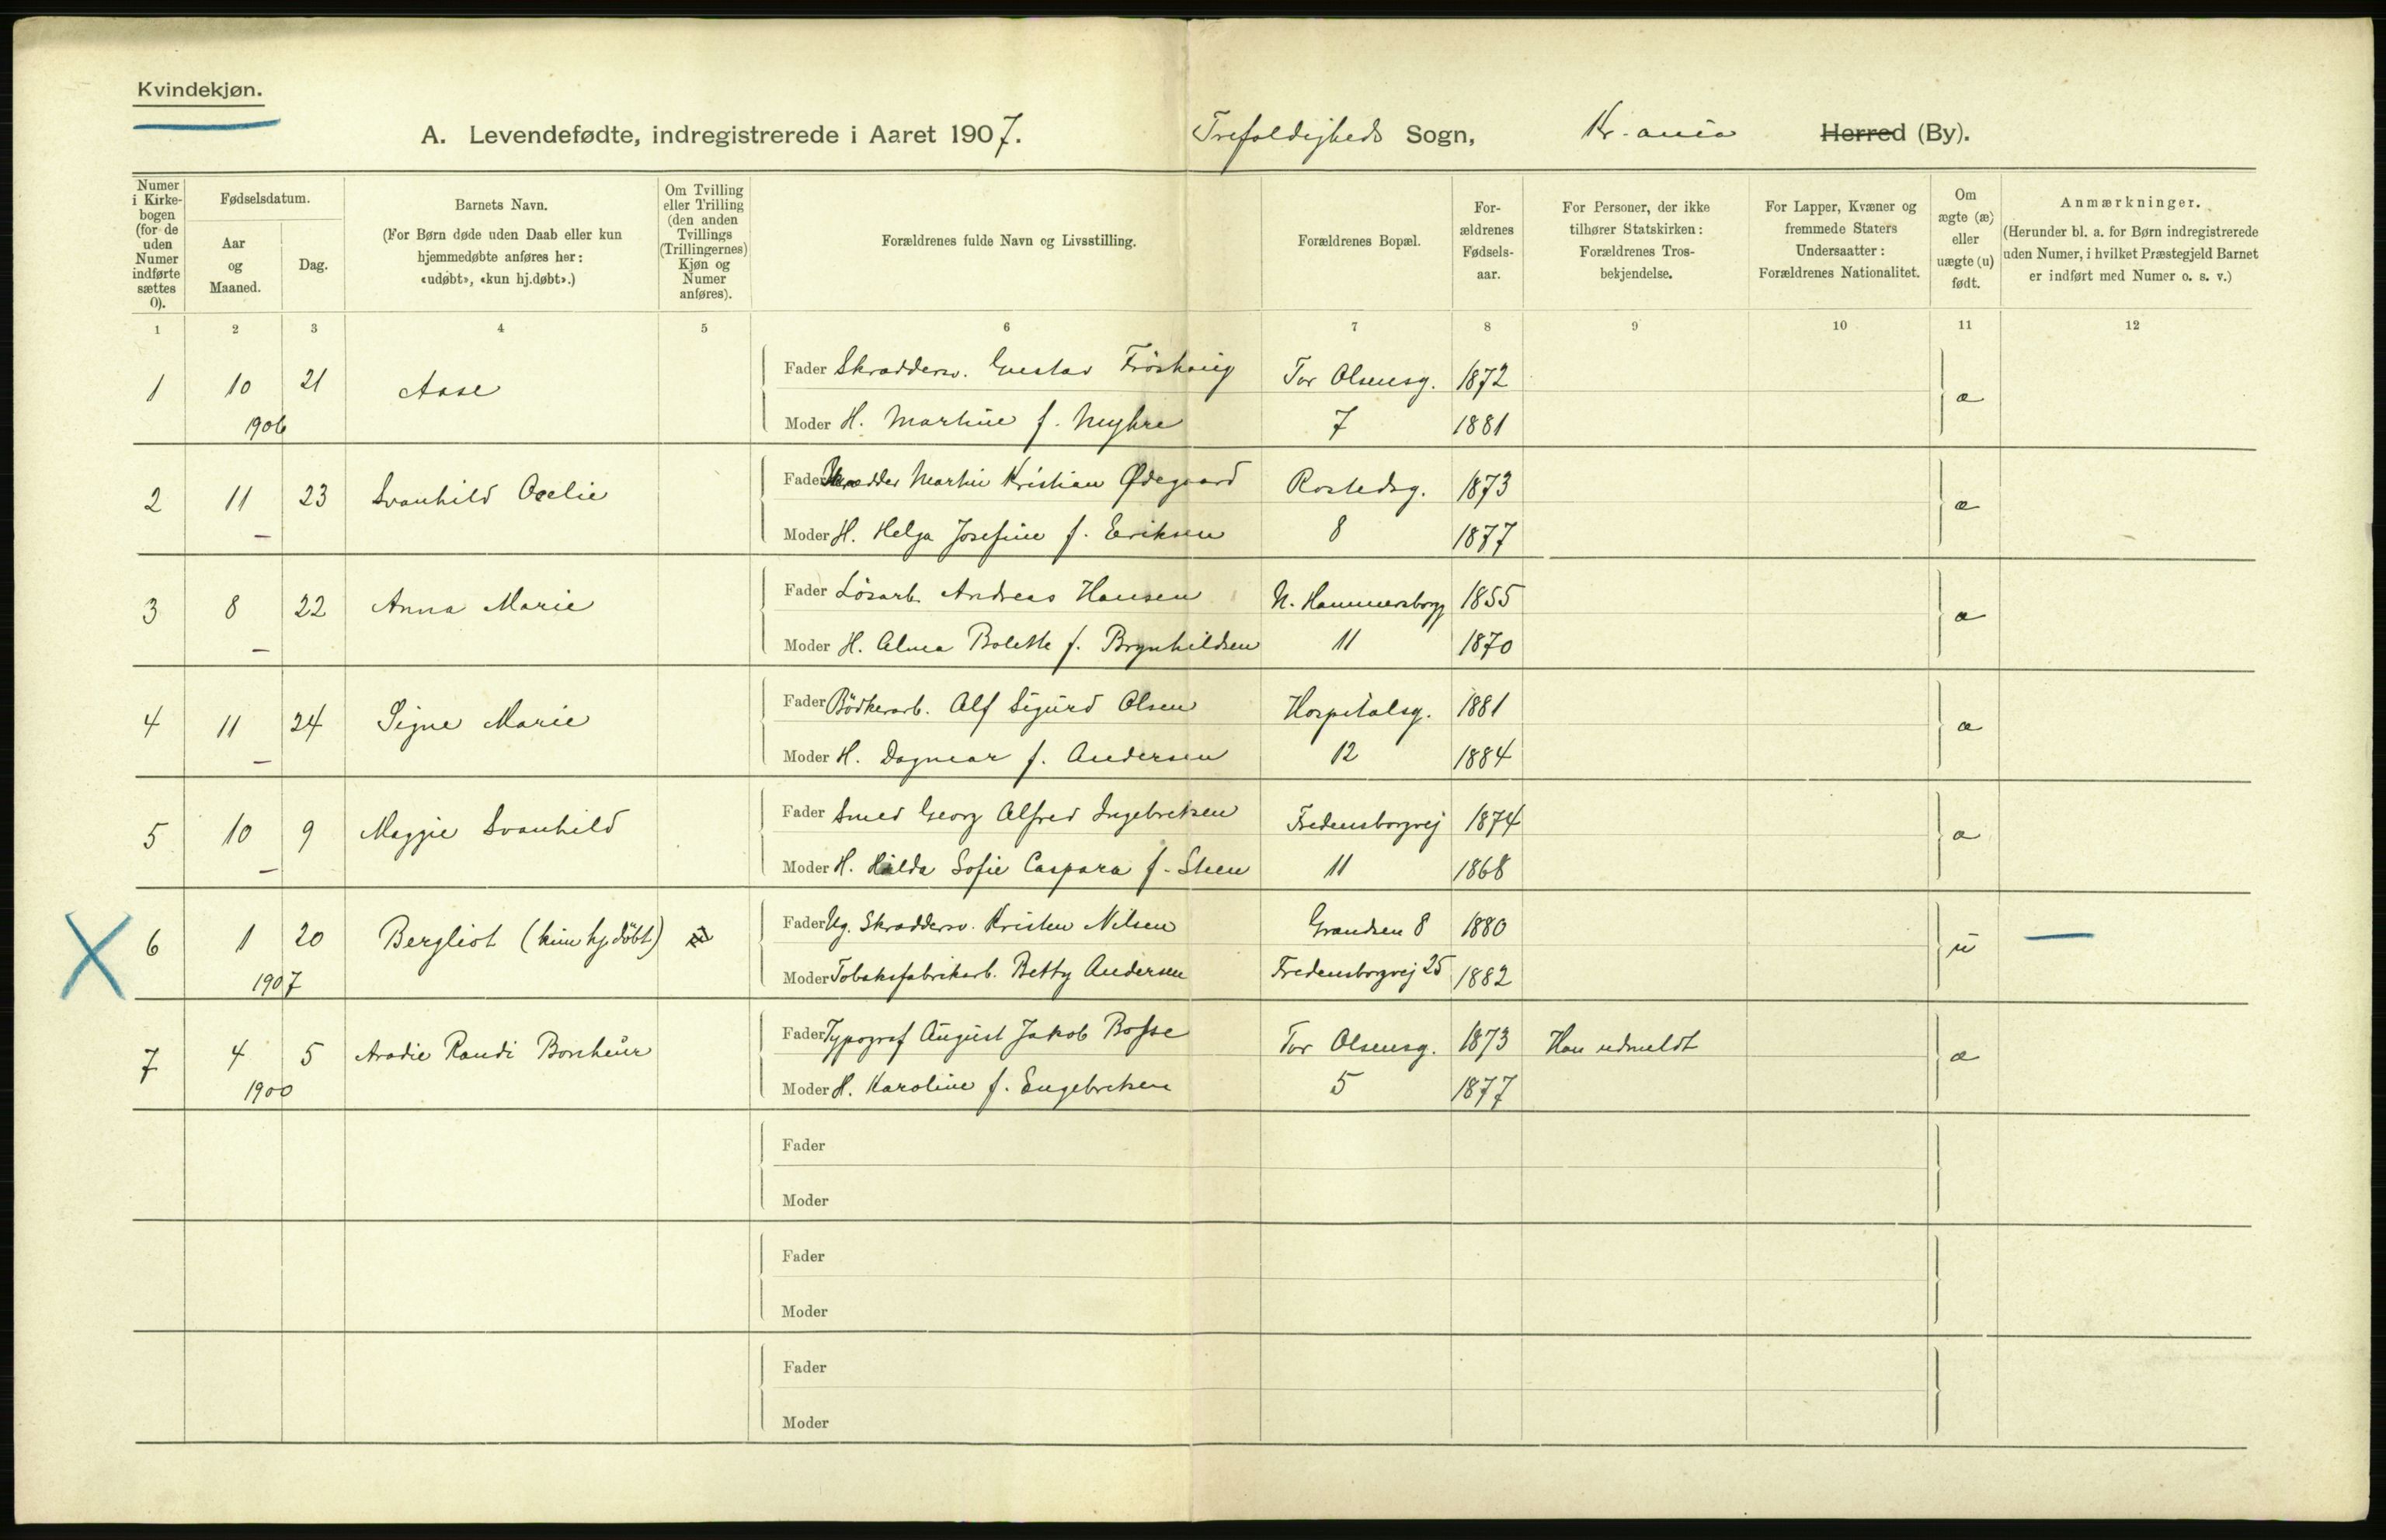 Kvindekjøn.
A. Levendefødte, indregistrerede i Aaret 1907. Trefoldigheds Sogn, Kr.ania Herred (By).
Numer i Kirkebogen (for de uden Numer indførte sættes 0).
Fødselsdatum.
Aar og Maaned.
Dag.
Barnets Navn.
(For Børn døde uden Daab eller kun hjemmedøbte anføres her: «udøbt», «kun hj.døbt».)
Om Tvilling eller Trilling (den anden Tvillings (Trillingernes) Kjøn og Numer anføres).
Forældrenes fulde Navn og Livsstilling.
Forældrenes Bopæl.
Forældrenes Fødselsaar.
For Personer, der ikke tilhører Statskirken: Forældrenes Trosbekjendelse.
For Lapper, Kvæner og fremmede Staters Undersaatter: Forældrenes Nationalitet.
Om ægte (æ) eller uægte (u) født.
Anmærkninger.
(Herunder bl. a. for Børn indregistrerede uden Numer, i hvilket Præstegjeld Barnet er indført med Numer o. s. v.)
1 2 3 4 5 6 7 8 9 10 11 12
1 10 21 Aase Fader Skræddersv. Gustav Tor Olsensg. 1872 æ
1906 Moder H. Martine f. Myhre 7 1881
2 11 23 Svanhild Fader Skrædder Martin Kristian Ødegaard Rostedsg. 1873 æ
– Moder H. Helga Josefine f. Eriksen 8 1877
3 8 22 Anna Marie Fader Løsarb. Andreas Hansen N. Hammersborgg 1855 æ
– Moder H. Alma Bolette f. Brynhildsen 11 1870
4 11 24 Signe Marie Fader Bödkerarb. Alf Sigurd Olsen Hospitalsg. 1881 æ
– Moder H. Dagmar f. Andersen 12 1884
5 10 9 Maggie Svanhild Fader Smed Georg Alfred Ingebretsen Fredensborgvej 1874 æ
– Moder H. Hilda Sofie Caspara f. Steen 11 1868
6 1 20 Bergliot (kun hj.döbt) Fader Ug. Skræddersv. Kristen Nilsen Grændsen 8 1880 u –
1907 Moder Tobaksfabrikarb. Betty Andersen Fredensborgvej 25 1882
7 4 5 Aradie Randi Bonheur Fader Typograf August Jakob Bosse Tor Olsensg. 1873 Han udmeldt æ
1900 Moder H. Karoline f. Engebretsen 5 1877
Fader
Moder
Fader
Moder
Fader
Moder